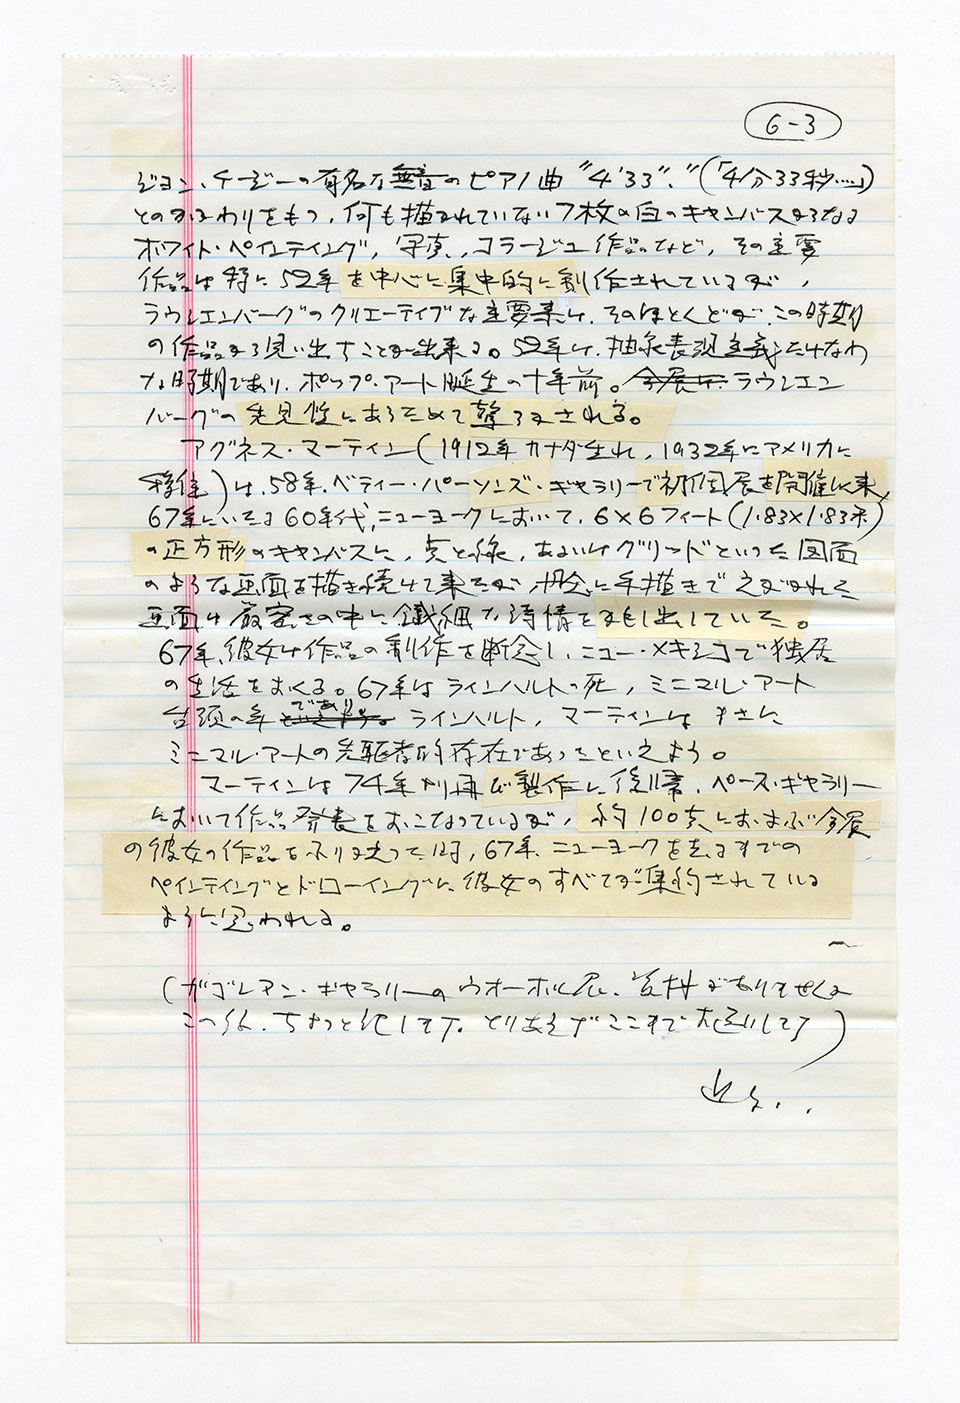 6-3
ジョン・ケージの有名な無音のピアノ曲"4'33"."(「4分33秒…」)
とのかかわりをもつ,何も描かれていない7枚の白のキャンバスからなる
ホワイト・ペインティング,写真,コラージュ作品など,その主要
作品は特に52年を中心に集中的に制作されているが,
ラウシェンバーグのクリエーティブな主要素は,そのほとんどが,この時期
の作品から見い出すことが出来る。52年は,抽象表現主義たけなわ
な時期であり,ポップ・アート誕生の十年前。今展は ラウシェン
バーグの先見性にあらためて驚ろかされる。
アグネス・マーティン(1912年カナダ生れ,1932年にアメリカに
移住)は,58年,ベティー・パーソンズ・ギャラリーで初個展を開催以来,
67年にいたる60年代,ニューヨークにおいて,6×6フィート(1.83×1.83米)
の正方形のキャンバスに,点と線,あるいはグリッドといった図面
のような画面を描き続けて来たが,手描きでえがかれた
画面は厳密さの中に繊細な詩情をかもし出していた。
67年,彼女は作品の制作を断念し,ニュー・メキシコで独居
の生活をおくる。67年はラインハルトの死,ミニマル・アート
台頭の年であり。ラインハルト,マーティンはまさに
ミニマル・アートの先駆者的存在であったといえよう。
マーティンは74年より再び製作に復帰,ペース・ギャラリー
において作品発表をおこなっているが,約100点におよぶ今展
の彼女の作品をふり返った時,67年,ニューヨークを去るまでの
ペインティングとドローイングに彼女のすべてが集約されている
ように思われる。
(ガゴシアン・ギャラリーのウオーホル展,
この後,ちょっと とりあえずここまでお送りします)